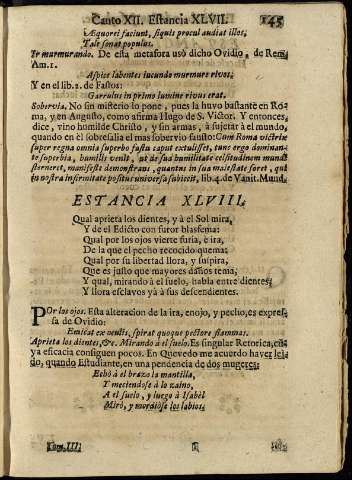 Canto XII. Estancia XLVII. 145
Æquorei faciunt, siquis procul audiat illos,
Tale sonat populus.
Ir murmurando. De esta metafora usò dicho Ovidio, de Rem.
Am. 1.
Aspice labentes iucundo murmure rivos,
Y en el lib. 2. de Fastos:
Garrulus in primo lumine rivus erat.
Sobervia. No sin misterio lo pone, pues la huvo bastante en Ro-
ma, y en Augusto, como afirma Hugo de S. Victor. Y entonces,
dice, vino humilde Christo, y sin armas, à sujetàr à el mundo,
quando en èl sobresalia el mas sobervio fausto: Cum Roma victrix
super regna omnia superbo fastu caput extulisset, tunc ergo dominan-
te superbia, humilis venit, ut de sua humilitate celsitudinem mundi
sterneret, manifeste demonstrans, quantus in sua maiestate foret, qui
in nostra infirmitate positus universa subiecit, lib. 4. de Vanit. Mund.
ESTANCIA XLVIII.
Qual aprieta los dientes, y à el Sol mira,
Y de el Edicto con furor blasfema:
Qual por los ojos vierte furia, è ira,
De la que el pecho recocido quema:
Qual por su libertad llora, y suspira,
Que es justo que mayores daños tema,
Y qual, mirando à el suelo, habla entre dientes,
Y llora esclavos yà à sus descendientes.
POr los ojos. Esta alteracion de la ira, enojo, y pecho, es expres-
sa de Ovidio:
Emicat ex oculis, spirat quoque pectore flammas.
Aprieta los dientes, &c. Mirando à el suelo. Es singular Retorica, cu-
ya eficacia consiguen pocos. En Quevedo me acuerdo haver leì-
do, quando Estudiante, en una pendencia de dos mugeres:
Echò à el brazo la mantilla,
Y meciendose à lo zaino,
A el suelo, y luego à Isabèl
Mirò, y mordiòse los labios.
Tom. III.